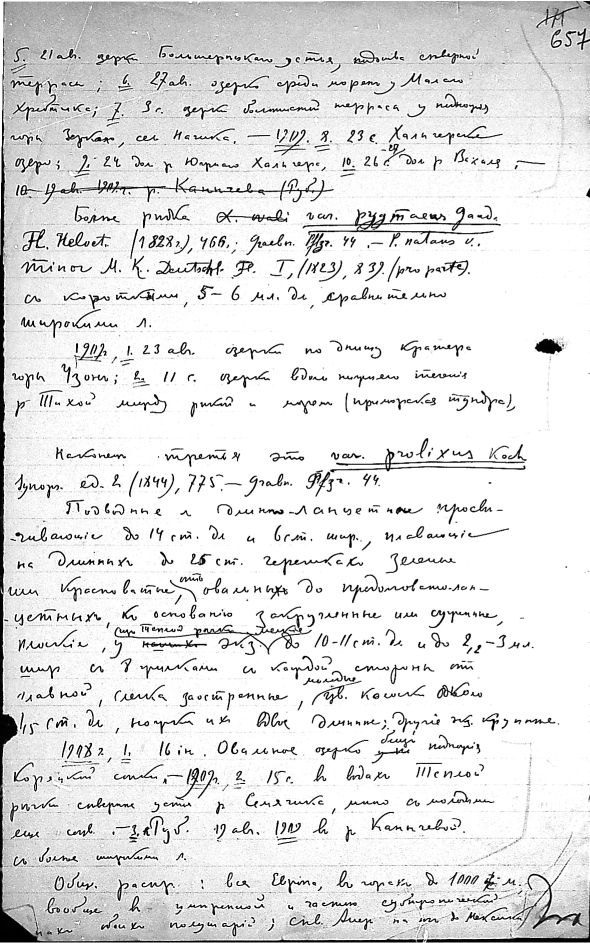 657
5. 21 ав. озерки Большерецкаго устья, подошва северной
террасы; 6. 27 ав. озерко среди морен у Малаго
Хребтика; 7. 3 с. озерки болотистой террасы у подножья
горы Зеркало, сел. Начика. — 1909. 8. 23 с. Халыгерское
озеро; 9. 24 дол р. Халыгера, 10. 26 с. дол р. Вахиля, —
10. 19 ав. 1909 г. р. Каничева (Губ.)
Более редка var. pygmaeus Gaud.
Fl. Helvet. (1828), 466.; Graebn. Pflzr. 44 — P. natans v.
minor M. K. Deutschl. Fl. I, (1823), 839. (pro parte).
с короткими, 5–6 мл. дл, сравнительно
широкими л.
1909, 1. 23 ав. озерки по днищу кратера
горы Узон; 2. 11 с. озерки вдоль нижнего течения
р Тихой между рекой и морем (приморская тундра),
Наконец третья это var. prolixus Koch
Synops. ed. 2 (1844), 775. — Graebn. Pflzr. 44.
Подводные л длинно-ланцетные просве-
-чивающие до 14 ст. дл и ст. шир., плавающие
на длинных до 25 ст. черешках зеленые
или красноватые, от овальных до продолговато-лан-
-цетных, ко основанию закругленные или суженные,
плоские, у экз. до 10–11 ст. дл и до 2,2–3 мл.
шир с жилками с каждой стороны от
главной, слегка заостренные, молодые цв. колоски около
1,5 ст. дл, ножки их вдвое длиннее; другие экз. крупнее.
1908 г, 1. 16 ін. Овальное озерко близ подножья
Коряцкой сопки, — 1909, 2. 15 с. в водах Теплой
речки севернее устья р Семячика, мино с молодыми
еще соцв. — 3. Губ. 19 ав. 1909 в р Каничевой.
с более широкими л.
Общ. распр.: вся Европа, в горах до 1000 м,
вообще в умеренной и частью субтропической
полушарий; Сев. Амер. на юг до Мексики